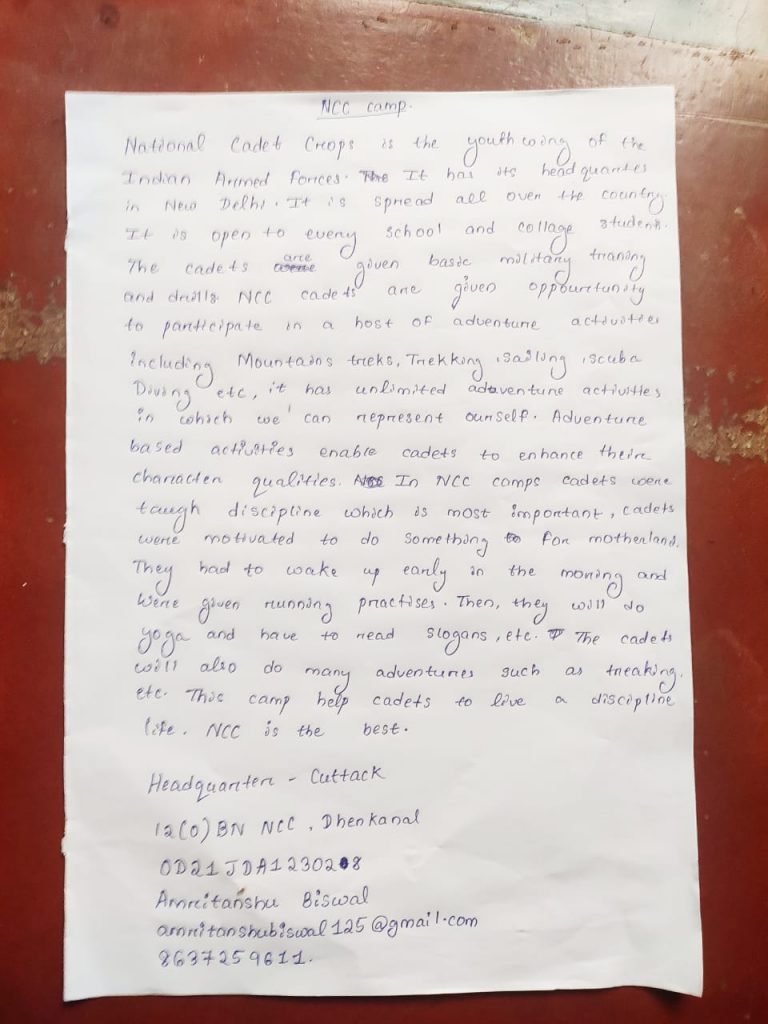 NCC camp.
National Cadet Creops is the youth wing of the
Indian Armed Forces. The It has its headquartes
in New Delhi. It is spread all over the country.
It is open to every school and collage student.
The cadets are given basic military traning
and drills NCC cadets are given oppourtunity
to participate in a host of adventure activities
including Mountains treks, Trekking, sailing, scuba
Diving etc, it has unlimited adaventure activities
in which we can represent ourself. Adventure
based activities enable cadets to enhance their
character qualities. In NCC camps cadets were
taugh discipline which is most important, cadets
were motivated to do something to for motherland.
They had to wake up early in the moning and
were given running practises. Then, they will do
yoga and have to read slogans, etc. The cadets
will also do many adventures such as treaking.
etc. This camp help cadets to live a discipline
life. NCC is the best.
Headquarter - Cuttack
12(O) BN NCC, Dhenkanal
OD21JDA123028
Amritanshu Biswal
amritanshubiswal125@gmail.com
8637259611.